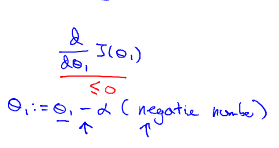 d/dθ₁ J(θ₁)
≤ 0
θ₁ := θ₁ - α (negatie number)